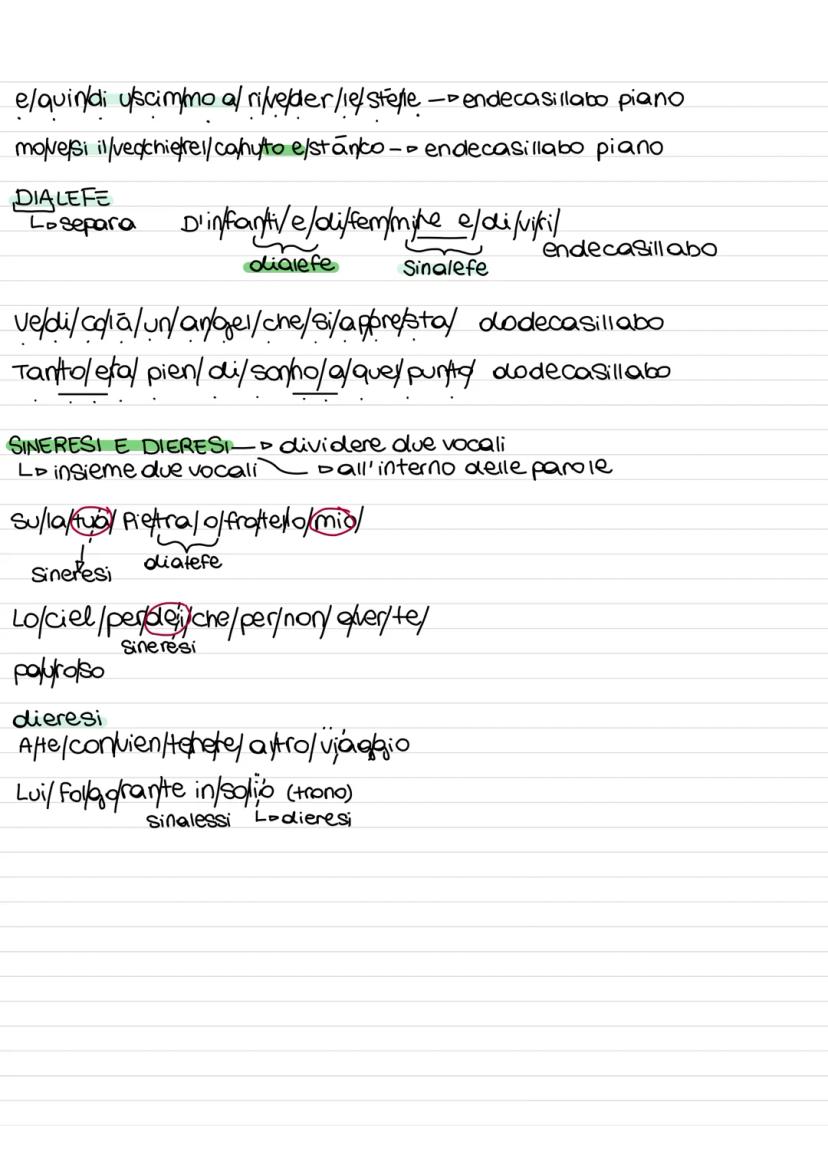 e/quin/di u/scim/mo a/ ri/ve/der/le/ stel/le → endecasillabo piano
mo/ve/si il/vec/chie/rel/ ca/nu/to e/stān/co → endecasillabo piano
DIALEFE
↳ separa D'in/fan/ti/e/di/fem/mi/ne e/di/vi/ri/
endecasillabo
dialefe Sinalefe
Ve/di/co/là/un/an/gel/che/si/appre/sta/ dodecasillabo
Tan/to/e/ra/ pien/ di/son/no/a/quel/ pun/to/ dodecasillabo
SINERESI E DIERESI → dividere due vocali
↳ insieme due vocali → all'interno delle parole
Su/la/tua/ Pie/tra/ o/fra/tel/lo/mio/
Sineresi dialefe
Lo/ciel/per/dei/che/per/non/ aver/te/
sineresi
pa/u/ro/so
dieresi
A/te/con/vien/te/ne/re/ al/tro/vïaggio
Lui/ Fol/go/ran/te in/so/lïo (trono)
sinalessi ↳ dieresi